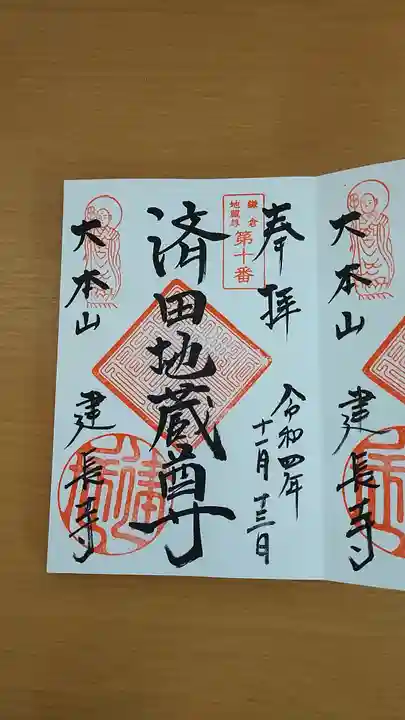 奉拝
鎌倉
地蔵尊
第十番
令和四年
十一月十三日
済田地蔵尊
大本山
建長寺
大本山
建長寺